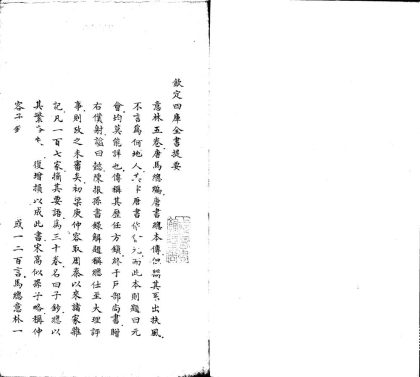 欽定四庫全書提要
意林五卷唐馬總編唐書總本傳但稱其系出扶風
不言為何地人 唐書作 元 而此本則題曰元
會均莫能詳也傳稱其歷任方鎮終于戶部尚書贈
右僕射諡曰懿陳振孫書錄解題稱總仕至大理評
事則攷之未審矣初梁庾仲容取周秦以來諸家雜
記凡一百七家摘其要語為三十卷名曰子鈔總以
其繁 復增損以成此書宋高似孫子略稱仲
容子 或一二百言馬總意林一